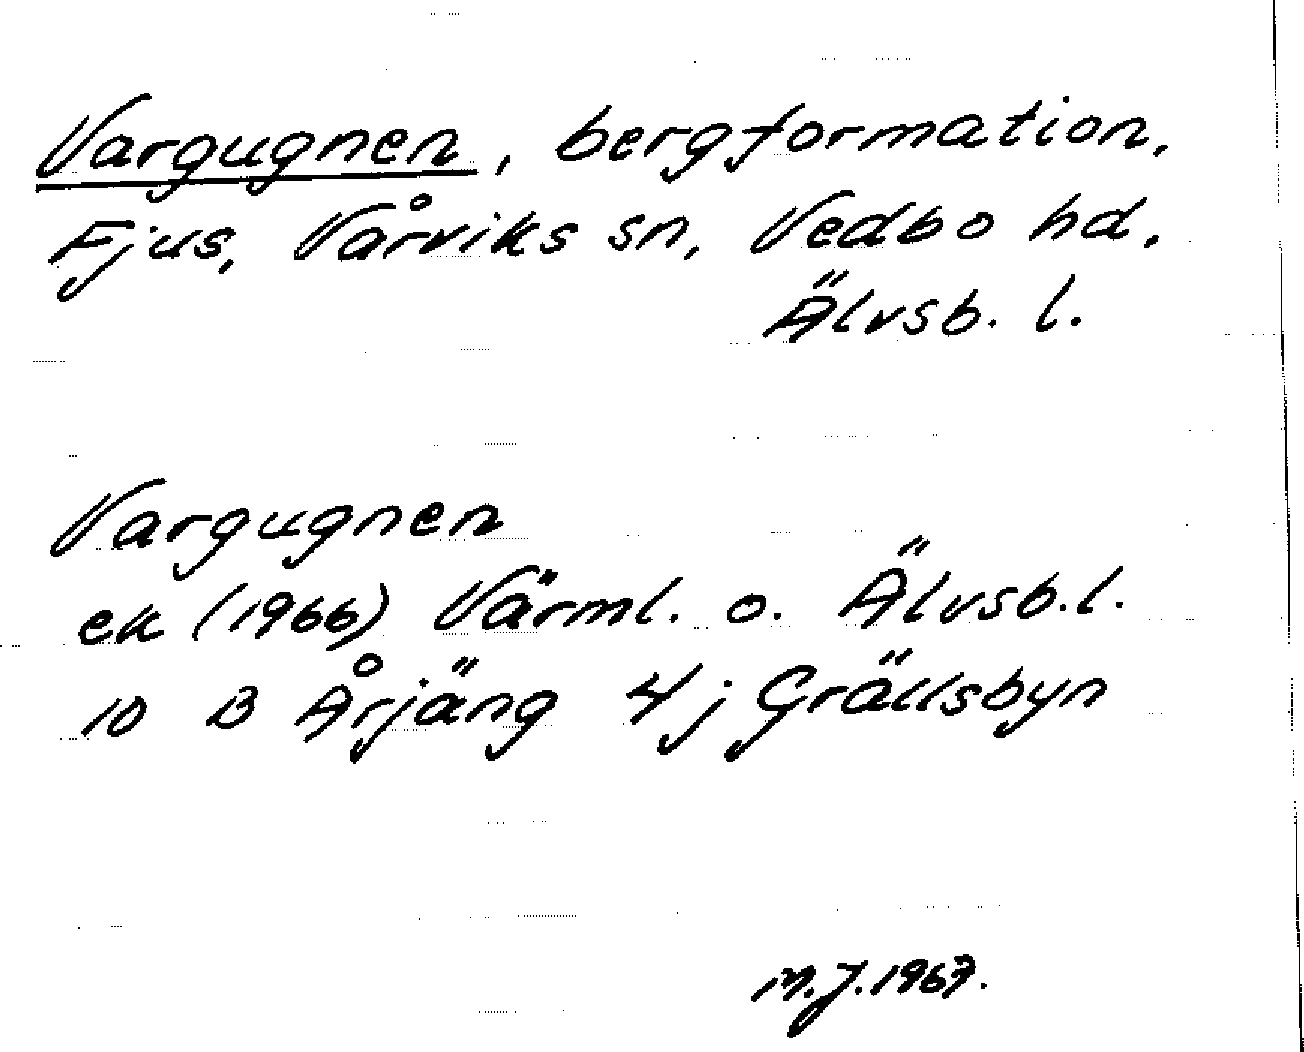 Vargugnen, bergformation,
Fjus, Vårviks sn, Vedbo hd,
Älvsb. l.
Vargugnen
ek (1966) Värml. o. Älvsb. l.
10 B Årjäng 4j Grällsbyn
M.J. 1967.